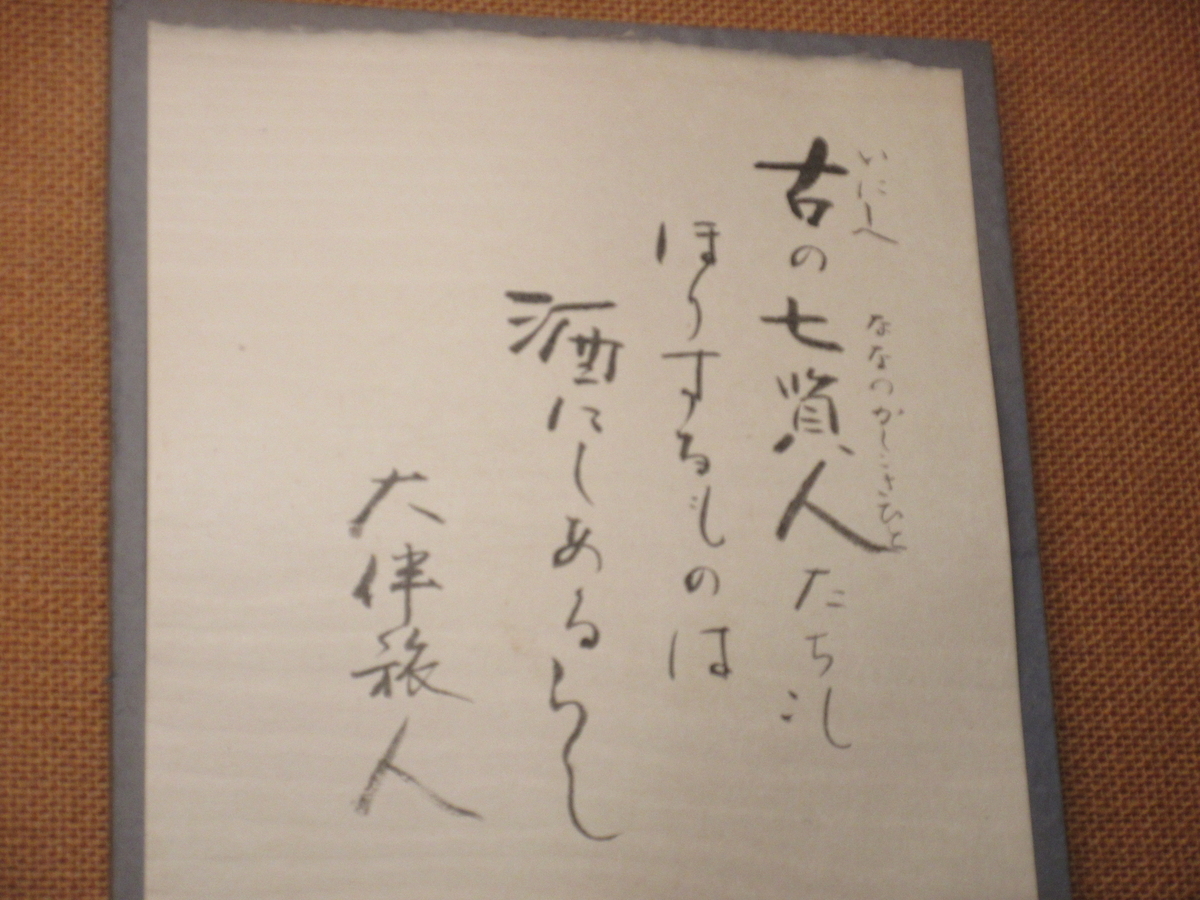 いにしへ ななのかしこきひと
古の七賢人たちも
ほりするものは
酒にしあるらし
大伴旅人